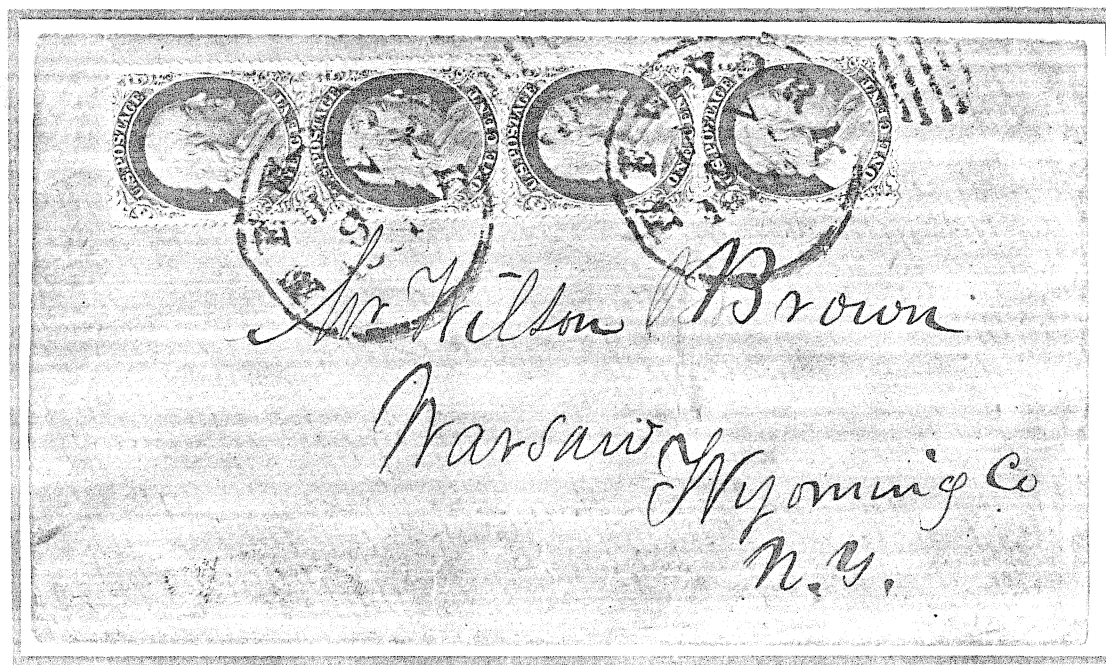 U.S. POSTAGE ONE CENT
U.S. POSTAGE ONE CENT
U.S. POSTAGE ONE CENT
U.S. POSTAGE ONE CENT
Mr Wilson Brown
Warsaw
Wyoming Co
N.Y.